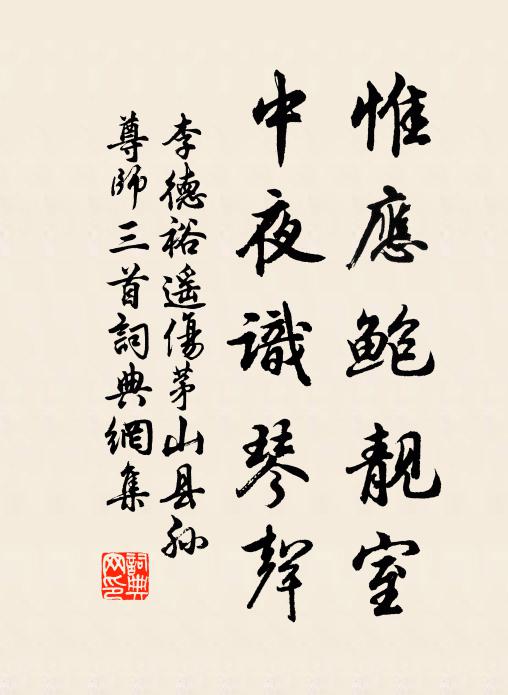 惟應鮑靚室
中夜識琴聲
李德裕遥傷茅山县孙
尊師三首詞典網集
詞典网印